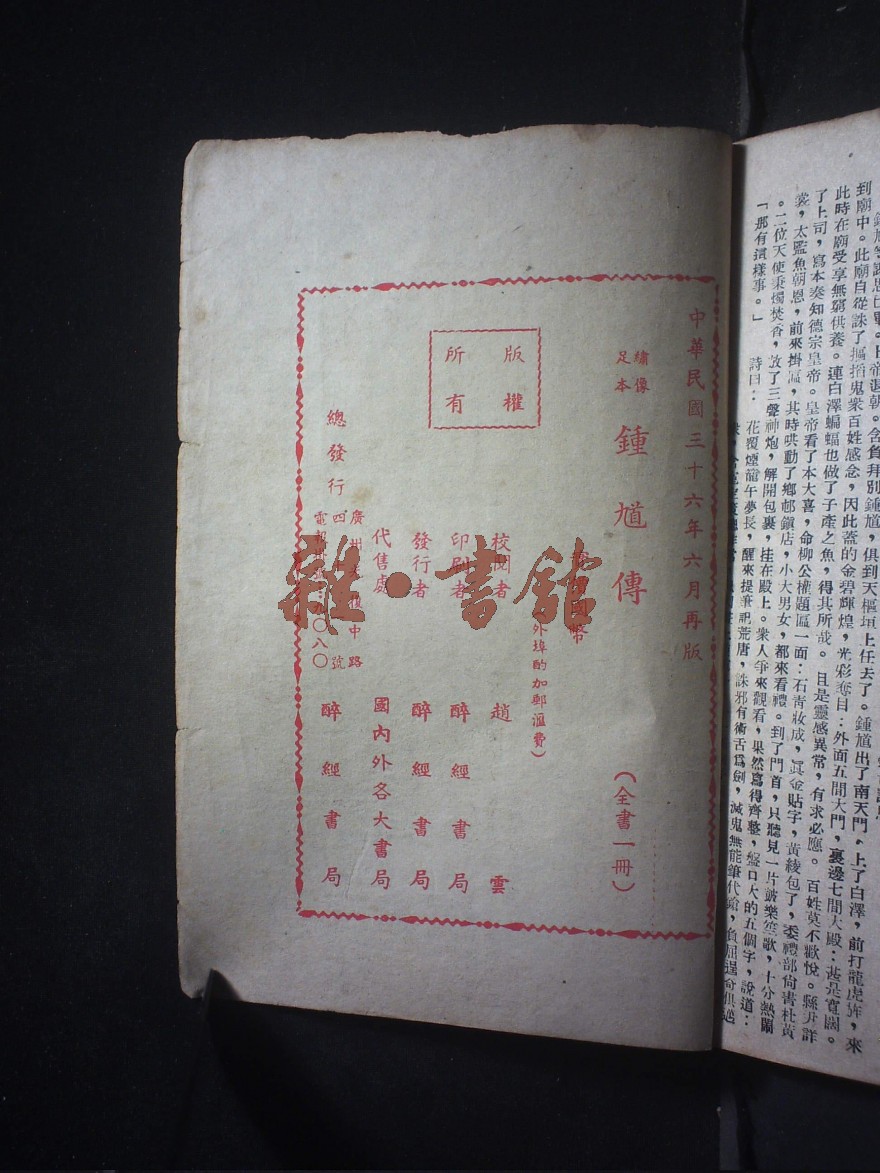 中華民國三十六年六月再版
繡像
足本
鍾馗傳
(全書一冊)
國幣
外埠酌加郵滙費)
版權
所有
校閱者 趙雲
印刷者 醉經書局
發行者 醉經書局
代售處 國內外各大書局
總發行 醉經書局
廣州 中路
四 號
九〇八〇
雜·書館
到廟中。此廟自從誅了搵掐鬼衆百姓感念,因此蓋的金碧輝煌,光彩奪目:外面五間大門,裏邊七間大殿:甚是寬闊。
此時在廟受享無窮供養。連白澤蝙蝠也做了子產之魚,得其所哉。且是靈感異常,有求必應。百姓莫不歡悅。縣尹詳
了上司,寫本奏知德宗皇帝。皇帝看了本大喜,命柳公權題匾一面:石靑妝成,眞金貼字,黃綾包了,委禮部尙書杜黃
裳,太監魚朝恩,前來掛匾,其時哄動了鄉邨鎭店,小大男女,都來看禮。到了門首,只聽見一片鼓樂笙歌,十分熱鬧
。二位天使秉燭焚香,放了三聲神炮,解開包裹,挂在殿上。衆人爭來觀看,果然寫得齊整,盤口大的五個字,說道:
「那有這樣事。」 詩曰: 花覆煙龍午夢長,醒來提筆記荒唐,誅邪有術舌爲劍,滅鬼無能筆代鎗,負屈